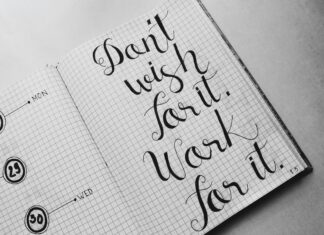 MON
29
WED
30
Don't
wish
for it.
Work
for it.